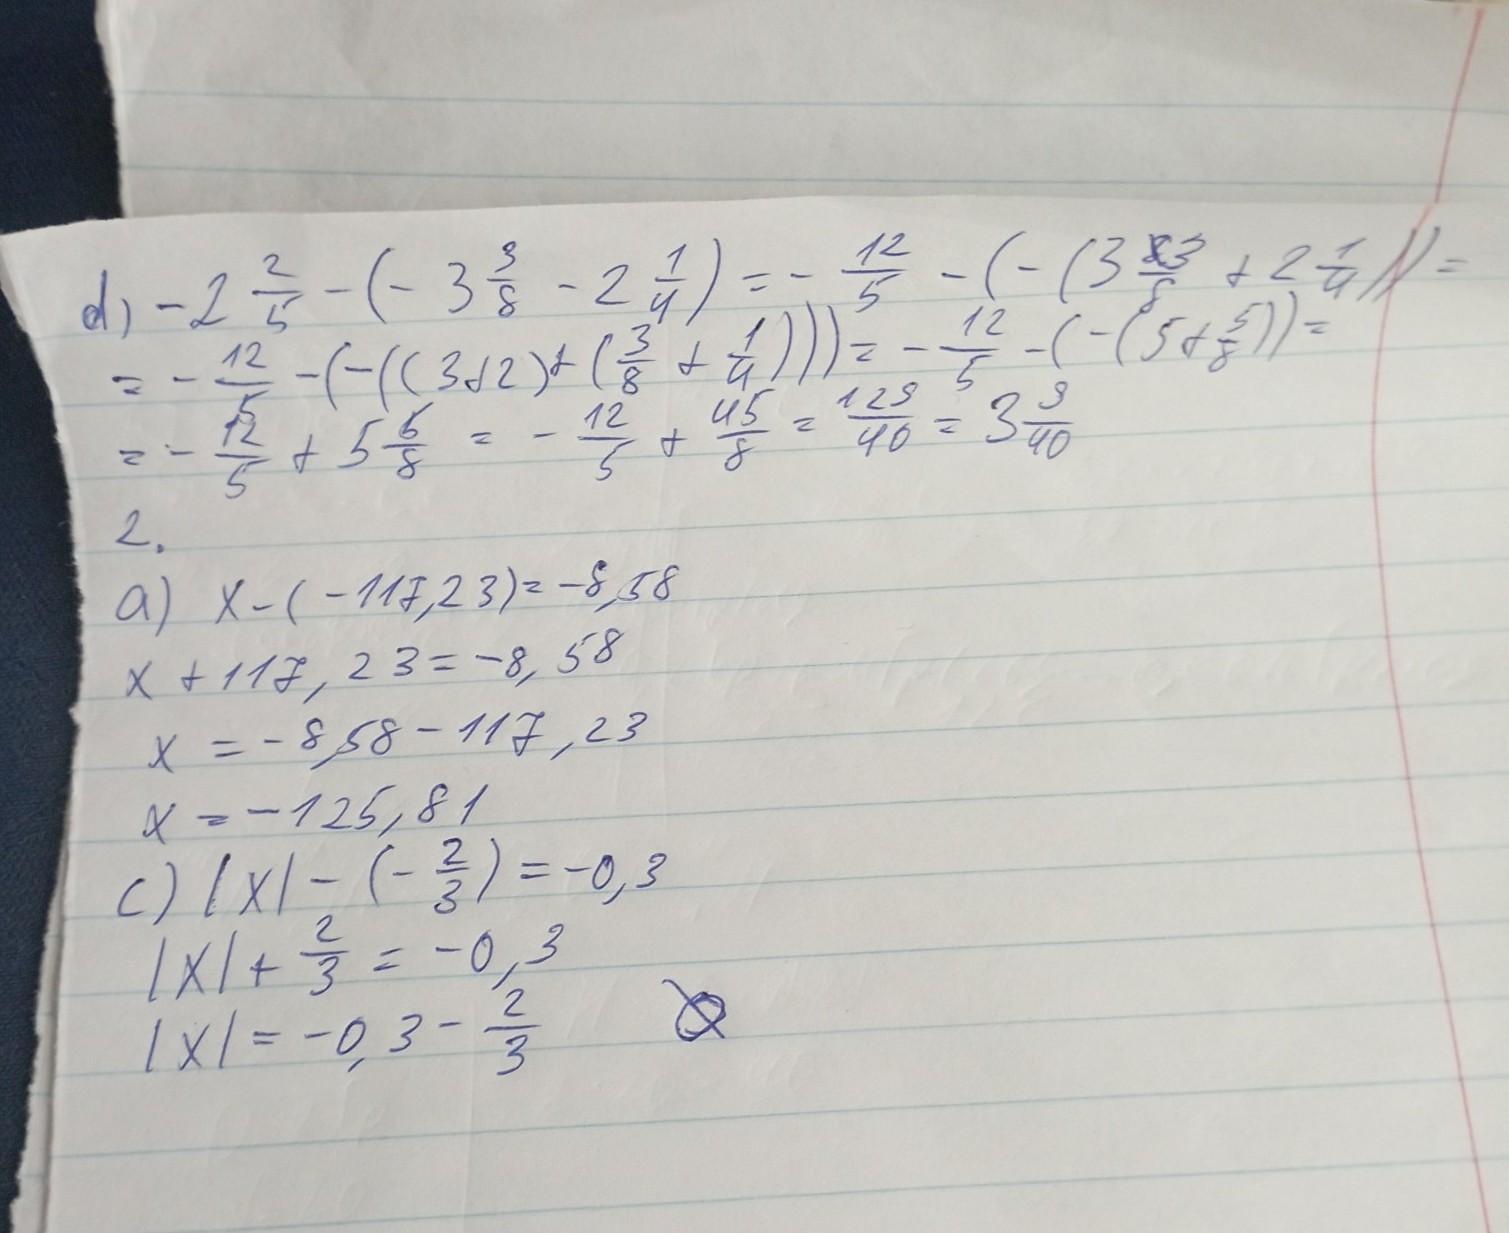 d) -2 2/5 - (-3 3/8 - 2 1/4) = - 12/5 - (-(3 3/8 + 2 1/4)) =
= - 12/5 - (-((3+2)+(3/8 + 1/4))) = - 12/5 - (-(5+5/8)) =
= - 12/5 + 5 5/8 = - 12/5 + 45/8 = 129/40 = 3 9/40
2.
a) x - (-117,23) = -8,58
x + 117,23 = -8,58
x = -8,58 - 117,23
x = -125,81
c) |x| - (-2/3) = -0,3
|x| + 2/3 = -0,3
|x| = -0,3 - 2/3 Ø